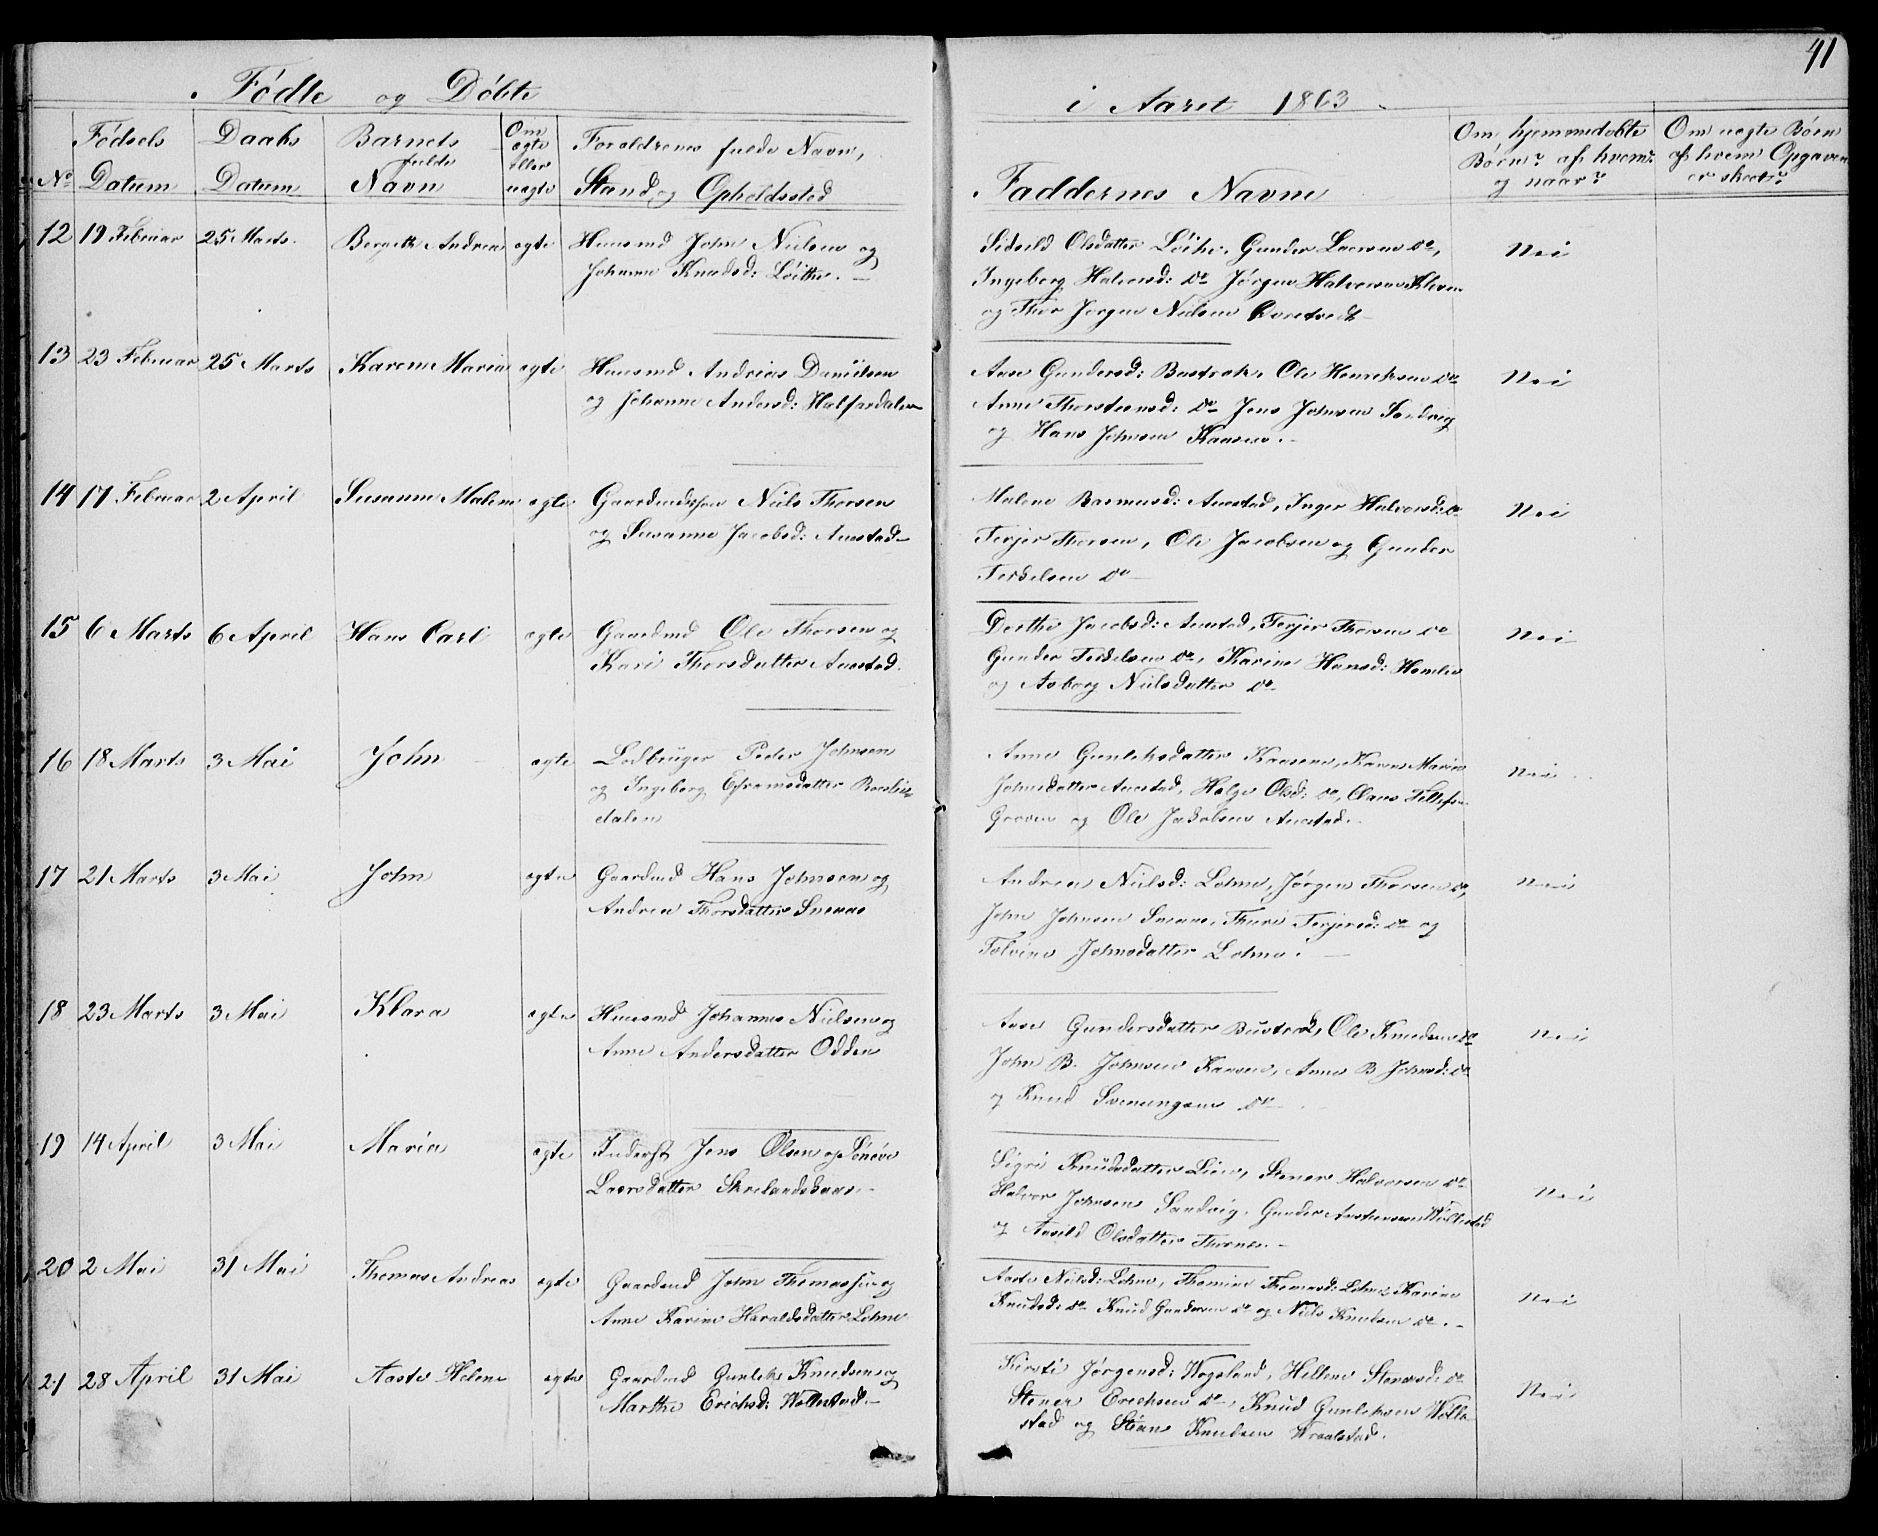 41
Fødte og Døbte i Aaret 1863
No
Fødsels Datum
Daabs Datum
Barnets fulde Navn
Om ægte eller uægte
Forældrenes fulde Navn, Stand og Opholdssted
Faddernes Navne
Om hjemmedøbte Børn? af hvem? og naar?
Om uægte Børn af hvem Opgaven er skeet?
12 19 Februar 25 Marts. Bergitte Andrea ægte Huusmd John Nielsen og
Johanne Knudsd: Løithe. –
Sidseld Olsdatter Løithe, Gunder Laersen do,
Ingeborg Halvorsd: do Jørgen Halvorsen Kleven
og Thor Jørgen Nielsen
Nei
13 23 Februar 25 Marts Karen Maria ægte Huusmd Andreas Danielsen
og Johanne Andersd: Halfardalen
Aase Gundersd: Bustrak, Ole Henriksen do
Anne Thorsteensd: do Jens Johnsen Sandvig
og Hans Johnsen Kaasen. –
Nei
14 17 Februar 2 April Susanne Malene ægte Gaardmdssøn Niels Thorsen
og Susanne Jacobsd: Aunstad –
Malene Rasmusd: Aunstad, Inger Halvorsd: do
Terjer Thorsen, Ole Jacobsen og Gunder
Terkelsen do –
Nei
15 6 Marts 6 April Hans Carl ægte Gaardmd Ole Thorsen og
Kari Thorsdatter Aunstad.
Dorthe Jacobsd: Aunstad, Terjer Thorsen do
Gunder Terkelsen do, Karine Hansd: Homlie
og Aaborg Nielsdatter do
Nei
16 18 Marts 3 Mai John ægte Lodbruger Peder Johnsen
og Ingeborg Eframsdatter
dalen
Anne Gunleksdatter Kaasene, Karen Marie
Johnsdatter Aunstad, Helge Olsd: do, Claus Tellefsen
Groven og Ole Jakobsen Aunstad.
Nei
17 21 Marts 3 Mai John ægte Gaardmd Hans Johnsen og
Andrea Thorsdatter Snenæs
Andrea Nielsd: Lohne, Jørgen Thorsen do,
John Johnsen Snenæs, Thuri Terjersd: do og
Tolvine Johnsdatter Lohne. –
Nei
18 23 Marts 3 Mai Klara ægte Huusmd Johannes Nielsen og
Anne Andersdatter Odden
Aase Gundersdatter Bustrak, Ole Knudsen do
John B. Johnsen Kaasen, Anne B Johnsd: do
og Knud Svenungsen do
Nei
19 14 April 3 Mai Maria ægte Inderst Jens Olsen og Sønøve
Laersdatter Skrelandsaas. –
Sigri Knudsdatter Lien, Stener Halvorsen do
Halvor Johnsen Sandvig, Gunder Austensen Wollestad
og Aasild Olsdatter Thornes. –
Nei
20 2 Mai 31 Mai Thomas Andreas ægte Gaardmd John Thomassen og
Anne Karine Haraldsdatter Lohne
Aaste Nielsd: Lohne, Thomine Thomasd: Lohne, Karine
Knudsd: do Knud Gundersen do og Niels Knudsen do. –
Nei
21 28 April 31 Mai Aaste Helene ægte Gaardmd Gunlek Knudsen og
Marthe Erichsd: Wollestad. –
Kirsti Jørgensd: Wogsland, Hellene Stenersd: do
Stener Erichsen do, Knud Gunleksen Wolle
stad og Stian Knudsen Wraalstad.
Nei